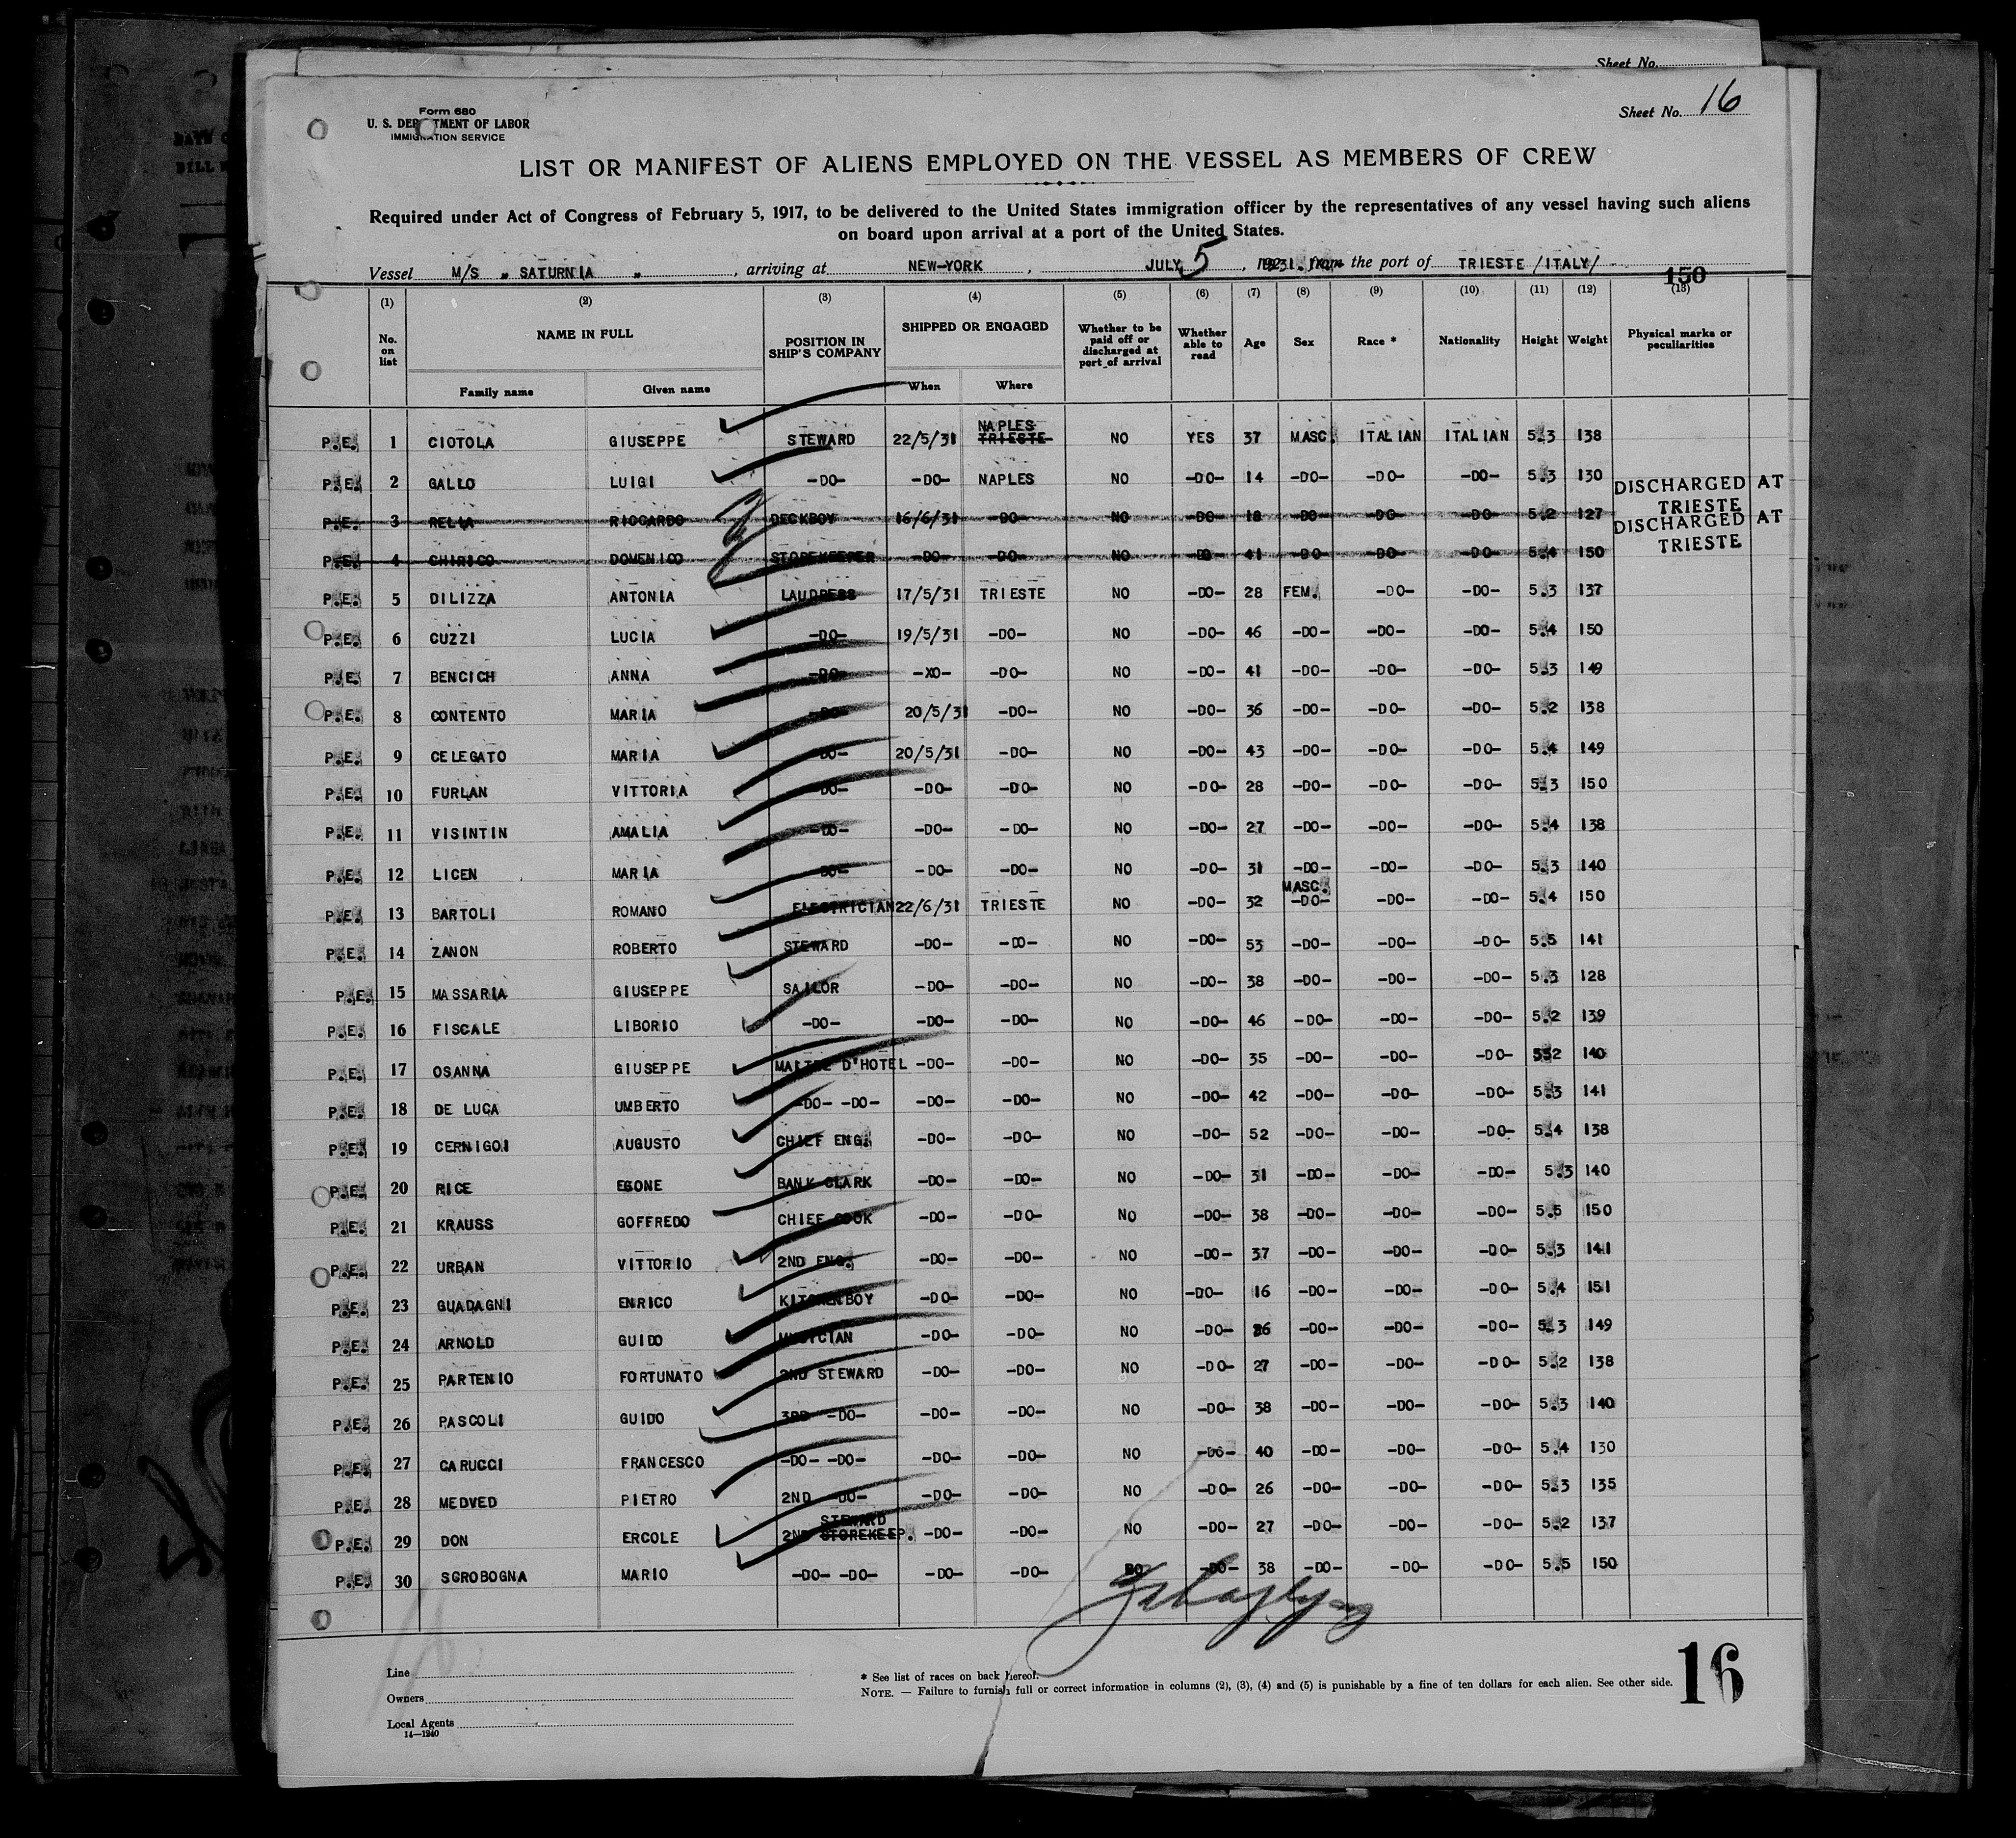 Sheet No.
Form 680
U. S. DEP TMENT OF LABOR
IMMIGRATION SERVICE
Sheet No. 16
LIST OR MANIFEST OF ALIENS EMPLOYED ON THE VESSEL AS MEMBERS OF CREW
Required under Act of Congress of February 5, 1917, to be delivered to the United States immigration officer by the representatives of any vessel having such aliens
on board upon arrival at a port of the United States.
Vessel M/S " SATURNIA " , arriving at NEW-YORK , JULY 5 , 1931. from the port of TRIESTE /ITALY/
150
(1) (2) (3) (4) (5) (6) (7) (8) (9) (10) (11) (12) (13)
No. on list NAME IN FULL POSITION IN SHIP'S COMPANY SHIPPED OR ENGAGED Whether to be paid off or discharged at port of arrival Whether able to read Age Sex Race * Nationality Height Weight Physical marks or peculiarities
Family name Given name When Where
P.E. 1 CIOTOLA GIUSEPPE STEWARD 22/5/31 NAPLES TRIESTE NO YES 37 MASC. ITALIAN ITALIAN 5.3 138
P.E. 2 GALLO LUIGI -DO- -DO- NAPLES NO -DO- 14 -DO- -DO- -DO- 5.3 130
P.E. 3 RELLA RICCARDO DECKBOY 16/6/31 -DO- NO -DO- 18 -DO- -DO- -DO- 5.2 127 DISCHARGED AT TRIESTE
P.E. 4 CHIRICO DOMENICO STOREKEEPER -DO- -DO- NO -DO- 41 -DO- -DO- -DO- 5.4 150 DISCHARGED AT TRIESTE
P.E. 5 DILIZZA ANTONIA LAUDRESS 17/5/31 TRIESTE NO -DO- 28 FEM. -DO- -DO- 5.3 137
P.E. 6 CUZZI LUCIA -DO- 19/5/31 -DO- NO -DO- 46 -DO- -DO- -DO- 5.4 150
P.E. 7 BENCICH ANNA -DO- -XO- -DO- NO -DO- 41 -DO- -DO- -DO- 5.3 149
P.E. 8 CONTENTO MARIA -DO- 20/5/31 -DO- NO -DO- 36 -DO- -DO- -DO- 5.2 138
P.E. 9 CELEGATO MARIA -DO- 20/5/31 -DO- NO -DO- 43 -DO- -DO- -DO- 5.4 149
P.E. 10 FURLAN VITTORIA -DO- -DO- -DO- NO -DO- 28 -DO- -DO- -DO- 5.3 150
P.E. 11 VISINTIN AMALIA -DO- -DO- -DO- NO -DO- 27 -DO- -DO- -DO- 5.4 138
P.E. 12 LICEN MARIA -DO- -DO- -DO- NO -DO- 31 -DO- -DO- -DO- 5.3 140
P.E. 13 BARTOLI ROMANO ELECTRICIAN 22/6/31 TRIESTE NO -DO- 32 MASC. -DO- -DO- -DO- 5.4 150
P.E. 14 ZANON ROBERTO STEWARD -DO- -DO- NO -DO- 53 -DO- -DO- -DO- 5.5 141
P.E. 15 MASSARIA GIUSEPPE SAILOR -DO- -DO- NO -DO- 38 -DO- -DO- -DO- 5.3 128
P.E. 16 FISCALE LIBORIO -DO- -DO- -DO- NO -DO- 46 -DO- -DO- -DO- 5.2 139
P.E. 17 OSANNA GIUSEPPE MAITRE D'HOTEL -DO- -DO- NO -DO- 35 -DO- -DO- -DO- 552 140
P.E. 18 DE LUCA UMBERTO -DO- -DO- -DO- -DO- NO -DO- 42 -DO- -DO- -DO- 5.3 141
P.E. 19 CERNIGOI AUGUSTO CHIEF ENG. -DO- -DO- NO -DO- 52 -DO- -DO- -DO- 5.4 138
P.E. 20 RICE EGONE BANK CLARK -DO- -DO- NO -DO- 31 -DO- -DO- -DO- 5.3 140
P.E. 21 KRAUSS GOFFREDO CHIEF COOK -DO- -DO- NO -DO- 38 -DO- -DO- -DO- 5.5 150
P.E. 22 URBAN VITTORIO 2ND ENG. -DO- -DO- NO -DO- 37 -DO- -DO- -DO- 5.3 141
P.E. 23 GUADAGNI ENRICO KITCHENBOY -DO- -DO- NO -DO- 16 -DO- -DO- -DO- 5.4 151
P.E. 24 ARNOLD GUIDO MUSICIAN -DO- -DO- NO -DO- 26 -DO- -DO- -DO- 5.3 149
P.E. 25 PARTENIO FORTUNATO 2ND STEWARD -DO- -DO- NO -DO- 27 -DO- -DO- -DO- 5.2 138
P.E. 26 PASCOLI GUIDO 3RD -DO- -DO- -DO- NO -DO- 38 -DO- -DO- -DO- 5.3 140
P.E. 27 CARUCCI FRANCESCO -DO- -DO- -DO- -DO- NO -DO- 40 -DO- -DO- -DO- 5.4 130
P.E. 28 MEDVED PIETRO 2ND -DO- -DO- -DO- NO -DO- 26 -DO- -DO- -DO- 5.3 135
P.E. 29 DON ERCOLE 2ND STEWARD STOREKEEP. -DO- -DO- NO -DO- 27 -DO- -DO- -DO- 5.2 137
P.E. 30 SCROBOGNA MARIO -DO- -DO- -DO- -DO- NO -DO- 38 -DO- -DO- -DO- 5.5 150
Line
Owners
Local Agents
14—1240
* See list of races on back hereof.
NOTE. — Failure to furnish full or correct information in columns (2), (3), (4) and (5) is punishable by a fine of ten dollars for each alien. See other side.
16